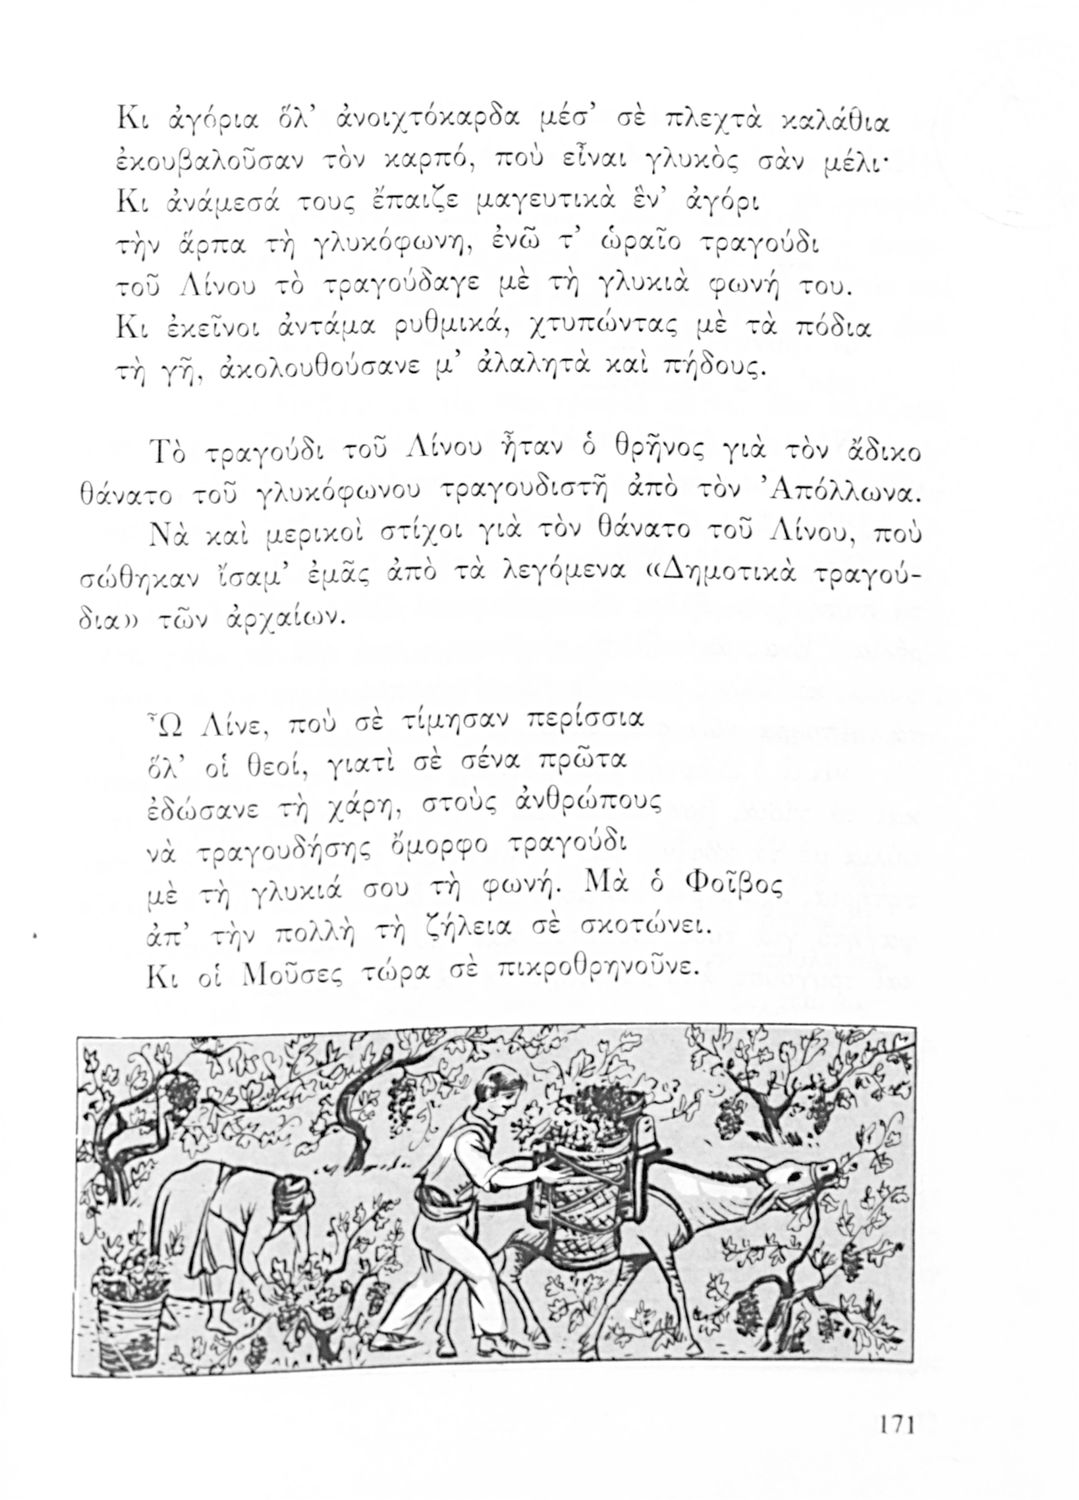 Κι ἀγόρια ὅλ’ ἀνοιχτόκαρδα μέσ’ σὲ πλεχτὰ καλάθια
ἐκουβαλοῦσαν τὸν καρπό, ποὺ εἶναι γλυκὸς σὰν μέλι·
Κι ἀνάμεσά τους ἔπαιζε μαγευτικὰ ἓν’ ἀγόρι
τὴν ἅρπα τὴ γλυκόφωνη, ἐνῶ τ’ ὡραῖο τραγούδι
τοῦ Λίνου τὸ τραγούδαγε μὲ τὴ γλυκιὰ φωνή του.
Κι ἐκεῖνοι ἀντάμα ρυθμικά, χτυπώντας μὲ τὰ πόδια
τὴ γῆ, ἀκολουθούσανε μ’ ἀλαλητὰ καὶ πήδους.
Τὸ τραγούδι τοῦ Λίνου ἦταν ὁ θρῆνος γιὰ τὸν ἄδικο
θάνατο τοῦ γλυκόφωνου τραγουδιστῆ ἀπὸ τὸν Ἀπόλλωνα.
Νὰ καὶ μερικοὶ στίχοι γιὰ τὸν θάνατο τοῦ Λίνου, ποὺ
σώθηκαν ἴσαμ’ ἐμᾶς ἀπὸ τὰ λεγόμενα «Δημοτικὰ τραγού-
δια» τῶν ἀρχαίων.
Ὦ Λίνε, ποὺ σὲ τίμησαν περίσσια
ὅλ’ οἱ θεοί, γιατὶ σὲ σένα πρῶτα
ἐδώσανε τὴ χάρη, στοὺς ἀνθρώπους
νὰ τραγουδήσης ὄμορφο τραγούδι
μὲ τὴ γλυκιά σου τὴ φωνή. Μὰ ὁ Φοῖβος
ἀπ’ τὴν πολλὴ τὴ ζήλεια σὲ σκοτώνει.
Κι οἱ Μοῦσες τώρα σὲ πικροθρηνοῦνε.
171